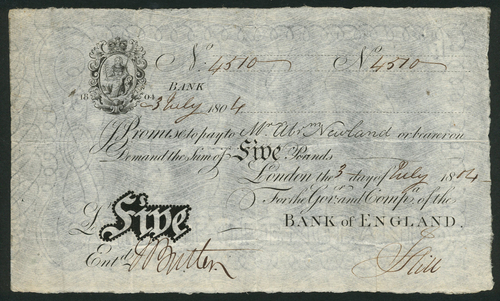 No: 4510 No 4510
BANK
18 04
3 July 1804
I Promise to pay to Mr. Abrm Newland or bearer on
Demand the Sum of Five Pounds
London the 3 day of July 1804
For the Govr. and Compa. of the
BANK of ENGLAND.
£ Five
Entd.